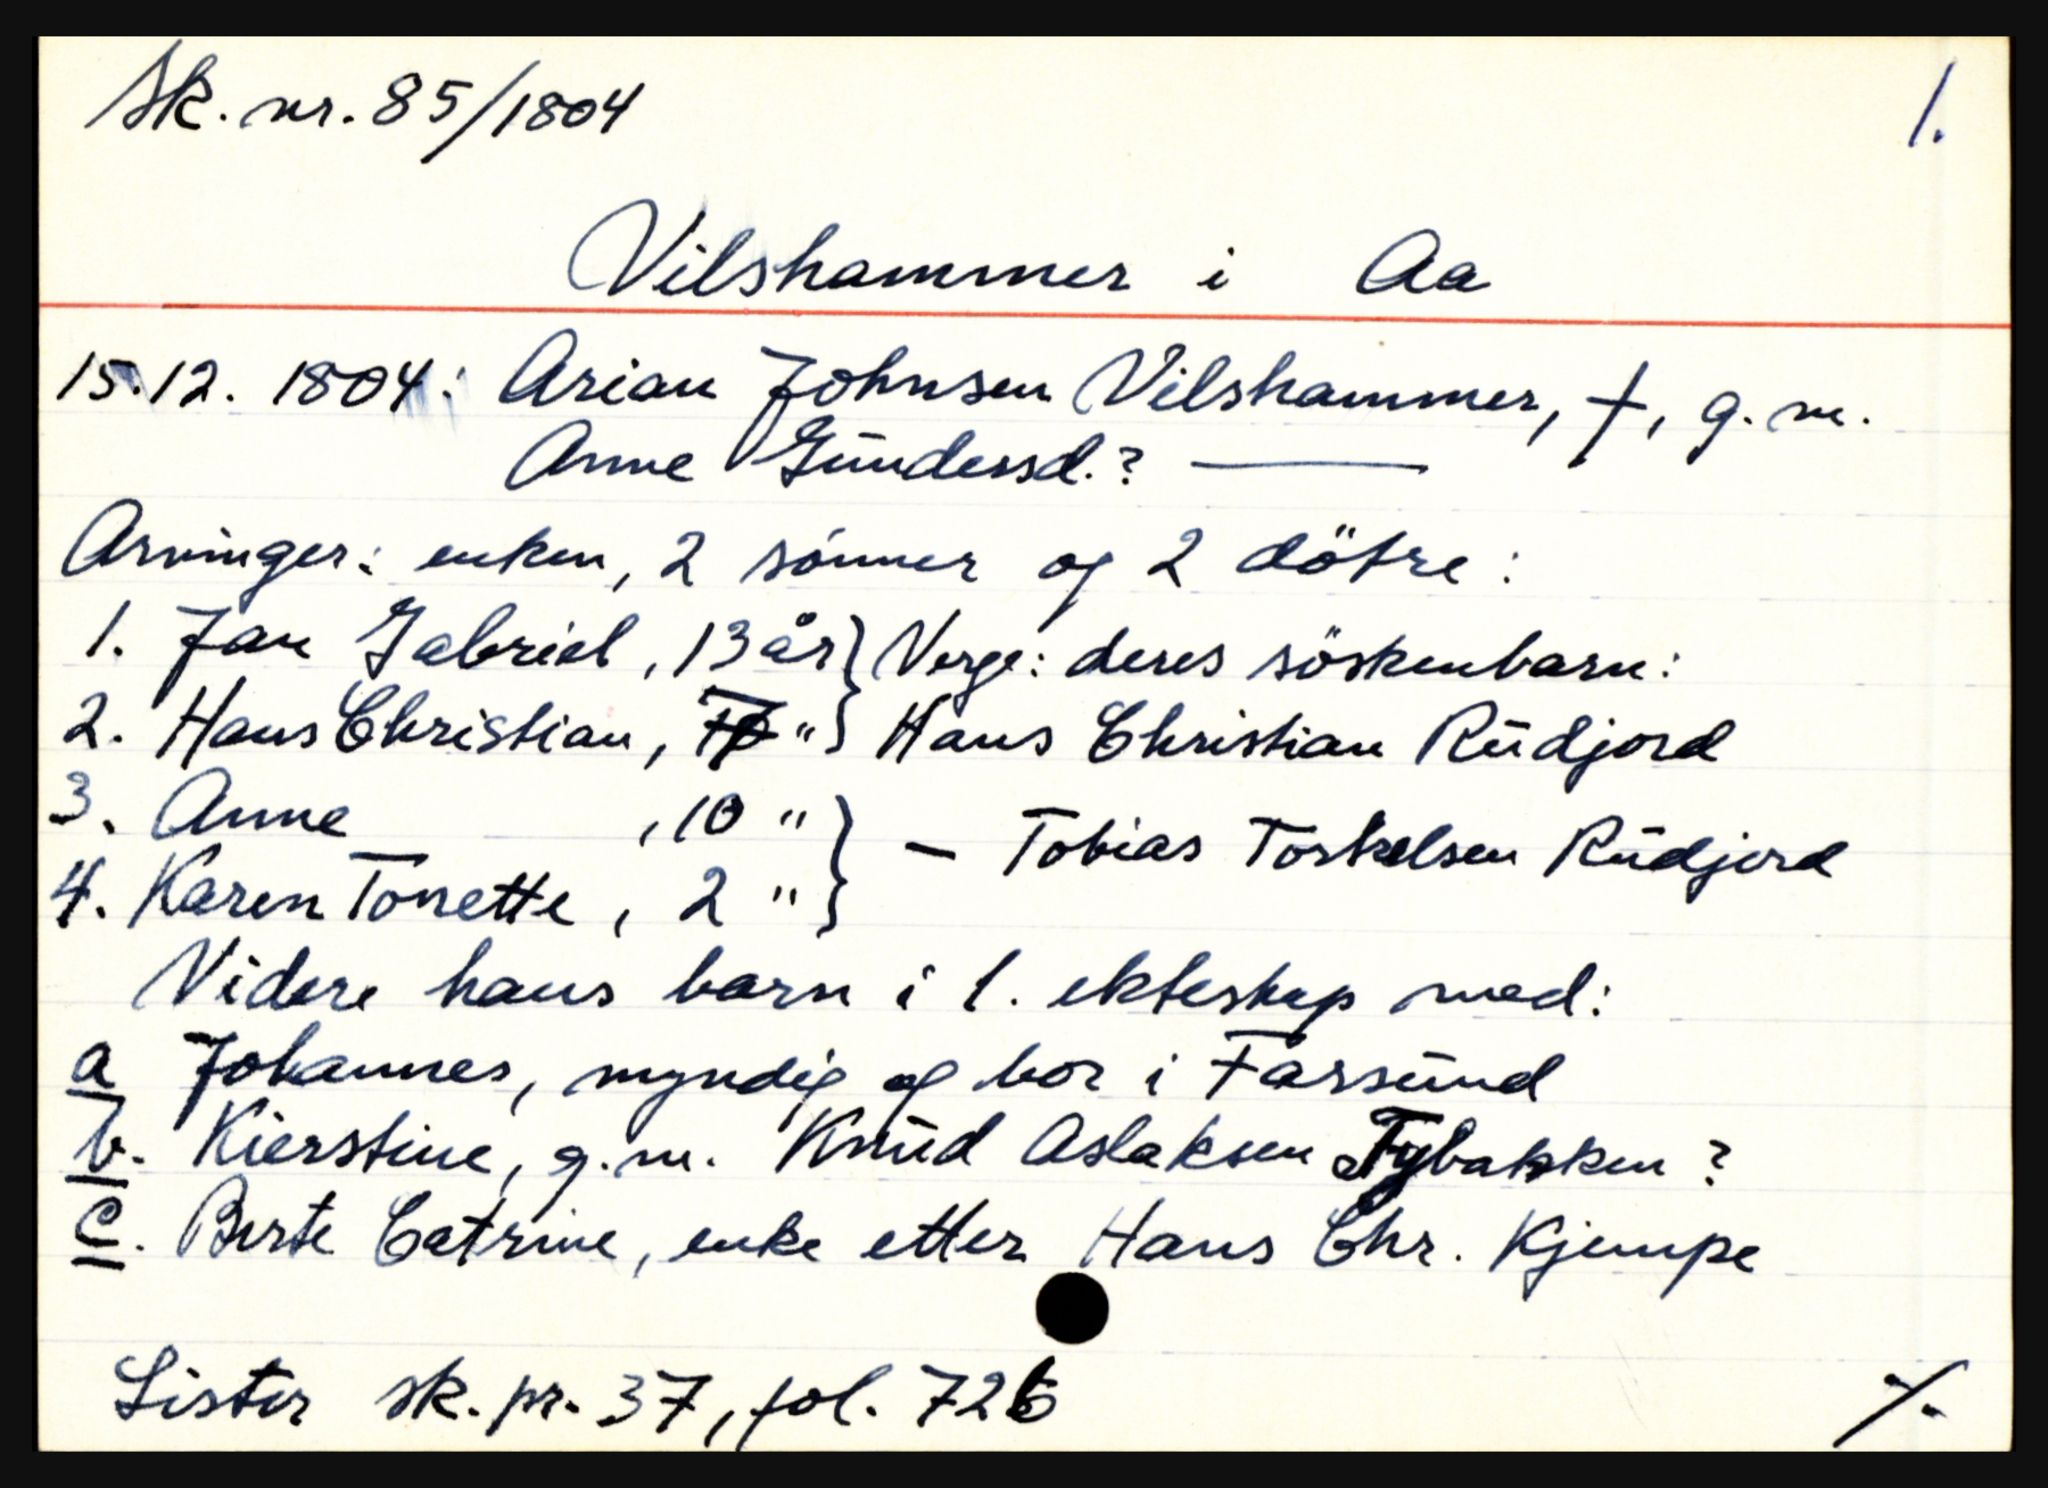 Sk. nr. 85/1804
1.
Vilshammer i Aa
15.12. 1804: Arian Johnsen Vilshammer, †, g. m.
Anne Gündersd.? —
Arvinger: enken, 2 sönner og 2 dötre:
1. Jan Gabriel, 13 år } Verge: deres söskenbarn:
2. Hans Christian, 7 " } Hans Christian Rüdjord
3. Anne , 10 " } — Tobias Torkelsen Rüdjord
4. Karen Tonette, 2 " }
Videre hans barn i 1. ekteskap med:
a Johannes, myndig og bor i Farsünd
b. Kierstine, g. m. Knüd Aslaksen Tybakken?
c. Berte Catrine, enke etter Hans Chr. Kjempe
Lister sk. pr. 37, fol. 726
./.